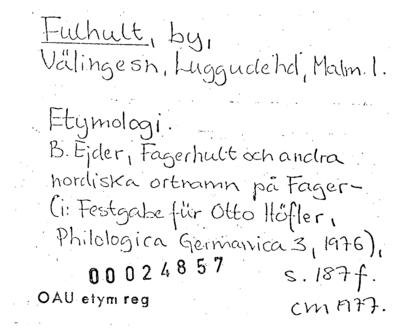 Fulhult, by,
Välinge sn, Luggude hd, Malm. l.
Etymologi.
B. Ejder, Fagerhult och andra
nordiska ortnamn på Fager-
(i: Festgabe für Otto Höfler,
Philologica Germanica 3, 1976),
00024857 s. 187 f.
OAU etym reg cm 1977.